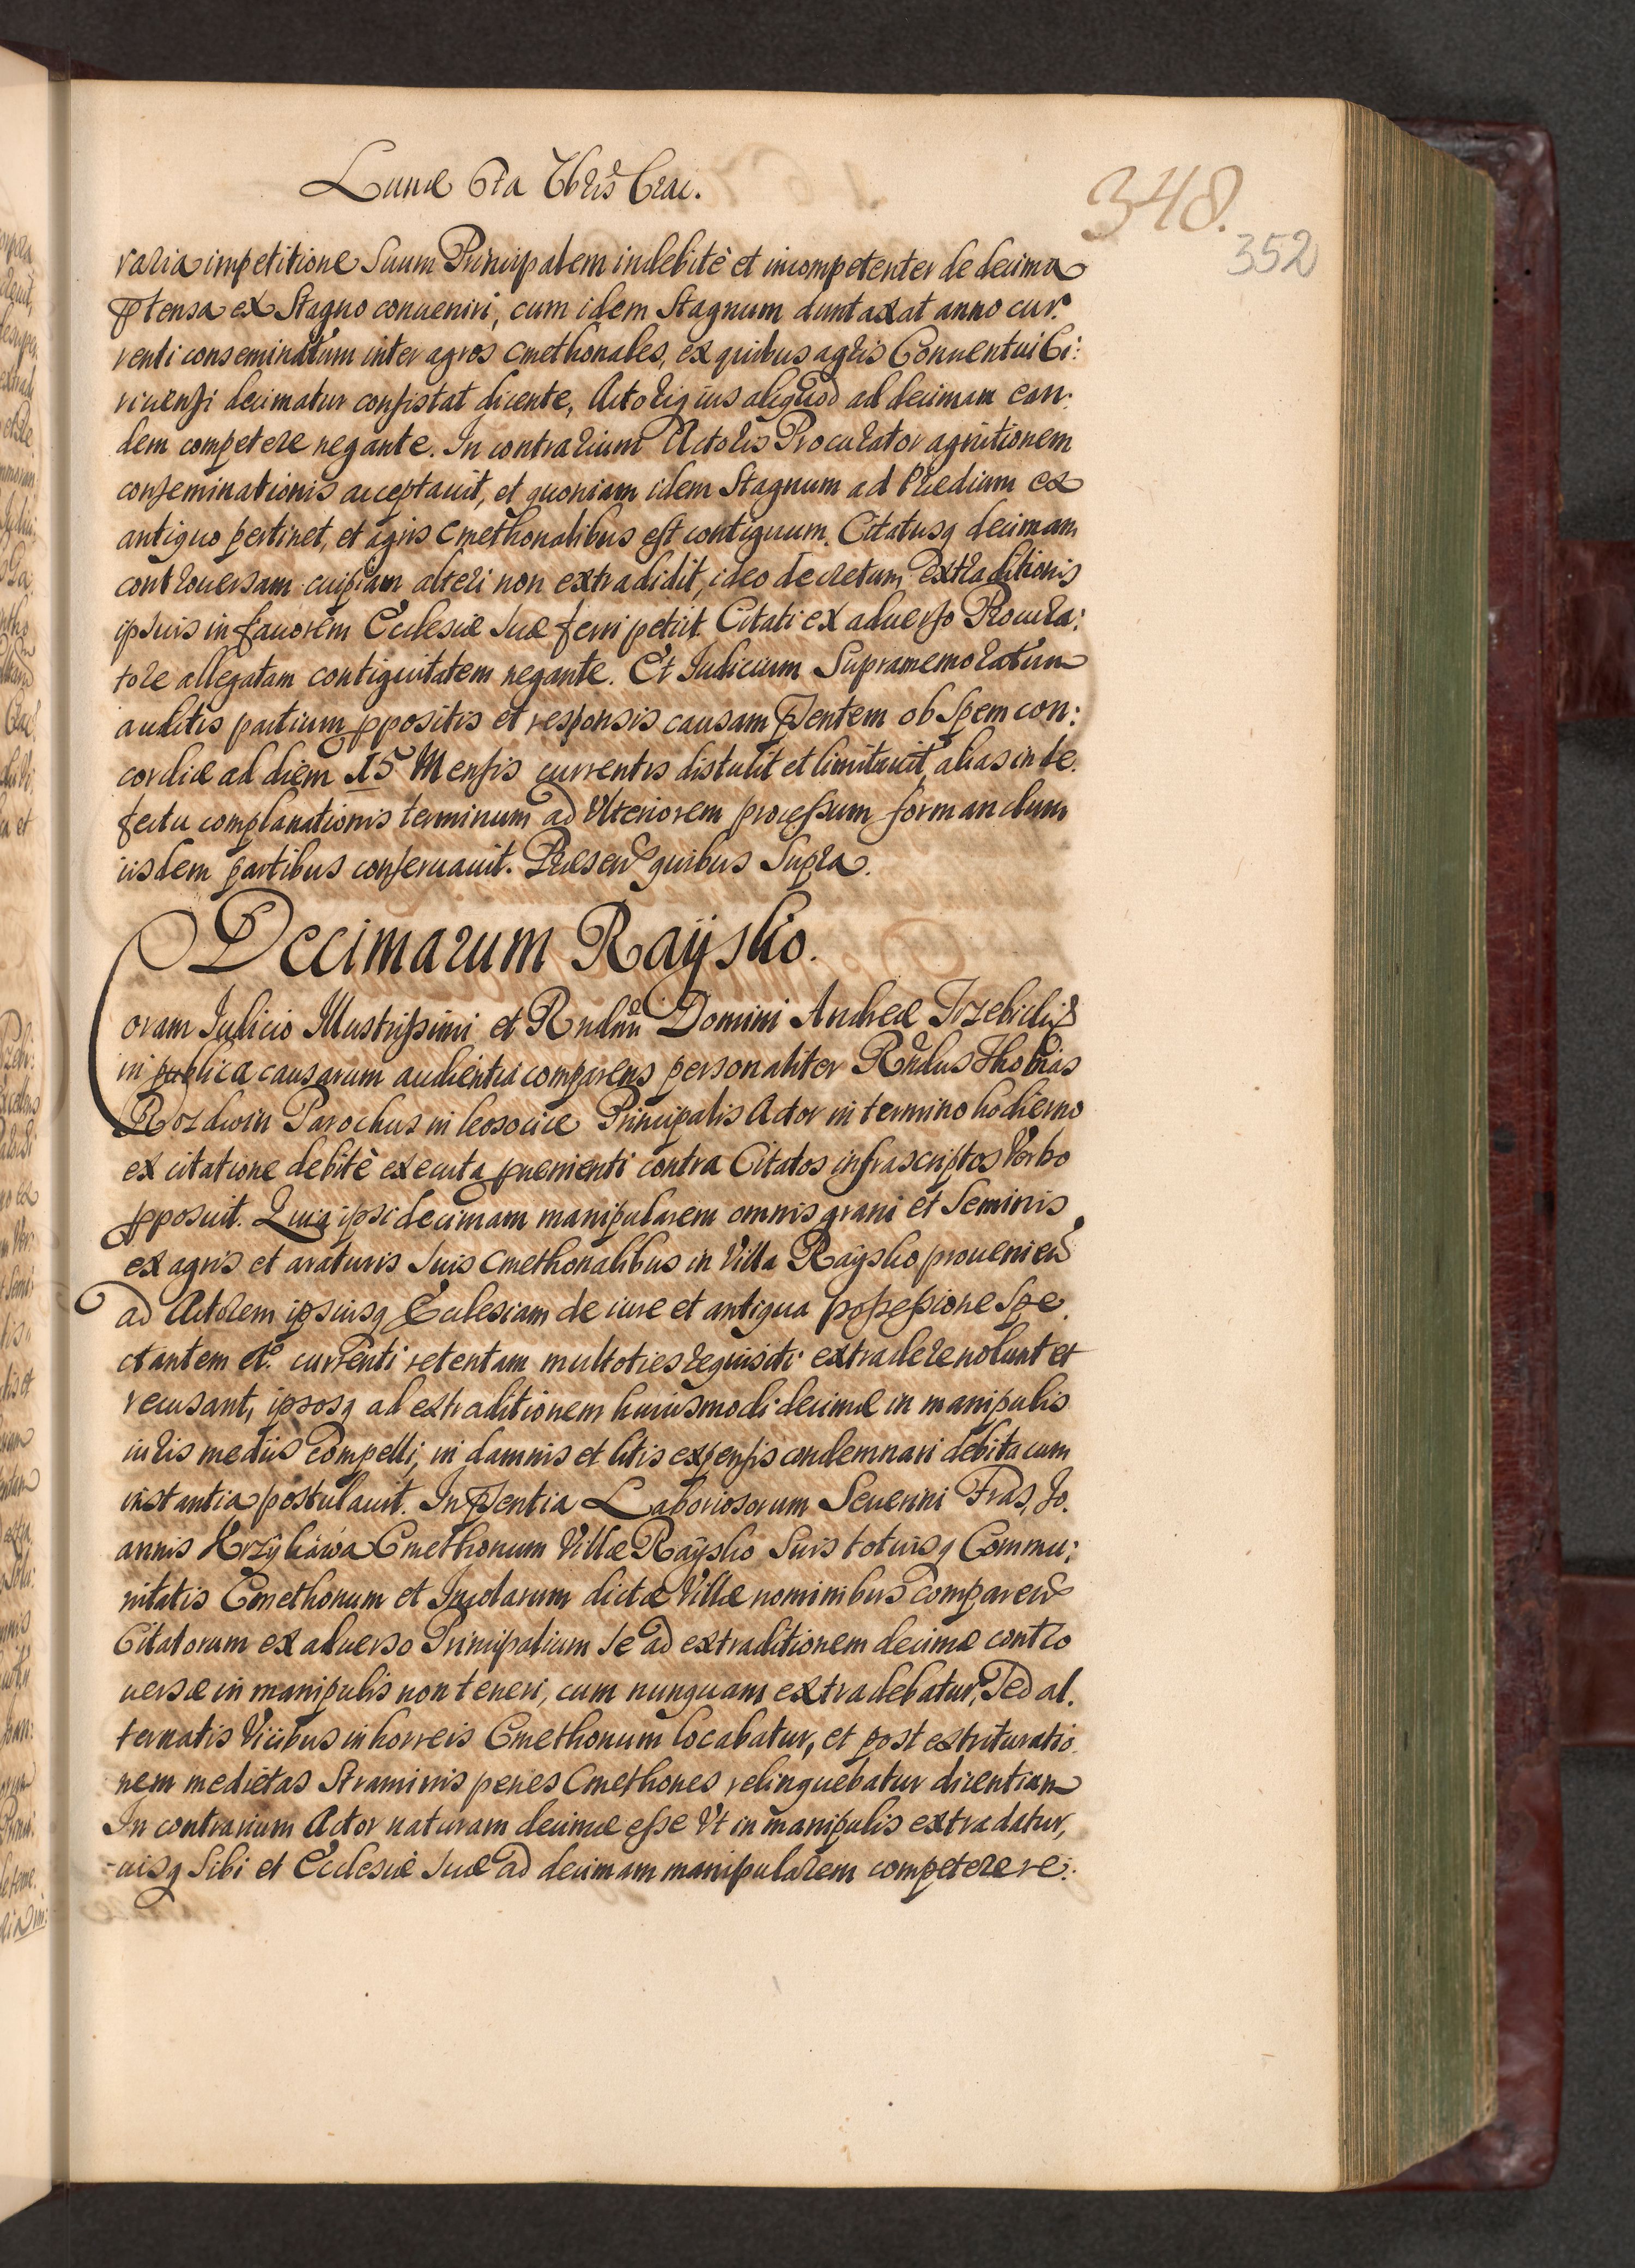 Lunæ 6ta 7bris Crac.
348.
352
raria impetitione Suum Principalem indebitè et incompetenter de decima
ptensa ex Stagno conueniri, cum idem Stagnum duntaxat anno cur:
renti conseminatum inter agros Cmethonales, ex quibus agris Conuentui Ci:
ricensi decimatur consistat dicente, Actoriq ius aliquod ad decimam ean:
dem competere negante. In contrarium Actoris Procurator agnitionem
conseminationis acceptauit, et quoniam idem Stagnum ad Prædium ex
antiquo pertinet, et agris Cmethonalibus est contiguum. Citatusq decimam
controuersam cuipiam alteri non extradidit, ideo decretum extraditionis
ipsius in fauorem Ecclesiæ suæ ferri petiit. Citati ex aduerso Procura:
tore allegatam contiguitatem negante. Et Iudicium Supramemoratum
auditis partium ppositis et responsis causam pntem ob Spem con:
cordiæ ad diem 15 Mensis currentis distulit et limitauit, alias in de:
fectu complanationis terminum ad Vlteriorem processum formandum
iisdem partibus conseruauit. Præsen quibus Supra.
Decimarum Raÿsko.
Coram Iudicio Illustrissimi et Rndmi Domini Andreæ Trzebicki
in publica causarum audientia comparens personaliter Rndus Thomas
Rozdwin Parochus in leosocice Principalis Actor in termino hodierno
ex citatione debitè executa puenienti contra Citatos infrascriptos Verbo
pposuit. Quia ipsi decimam manipularem omnis grani et Seminis
ex agris et araturis suis Cmethonalibus in Villa Raÿsko prouenien
ad Actorem ipsiusq Ecclesiam de iure et antiqua possessione Spe:
ctantem et Ao currenti retentam multoties requisiti extradere nolunt et
recusant, ipsosq ad extraditionem huiusmodi decimæ in manipulis
iuris mediis compelli, in damnis et litis expensis condemnari debita cum
instantia postulauit. In pntia Laboriosorum Seuerini Fras, Jo:
annis Krzykawa Cmethonum Villæ Raÿsko Suis totiusq Commu:
nitatis Cmethonum et Incolarum dictæ Villæ nominibus comparen
Citatorum ex aduerso Principalium se ad extraditionem decimæ contro
uersæ in manipulis non teneri, cum nunquam extradebatur, Sed al:
ternatis Vicibus in horreis Cmethonum locabatur, et post extrituratio:
nem medietas Straminis penes Cmethones relinquebatur dicentium
In contrarium Actor naturam decimæ esse Vt in manipulis extradatur,
iusq Sibi et Ecclesiæ suæ ad decimam manipularem competere re: